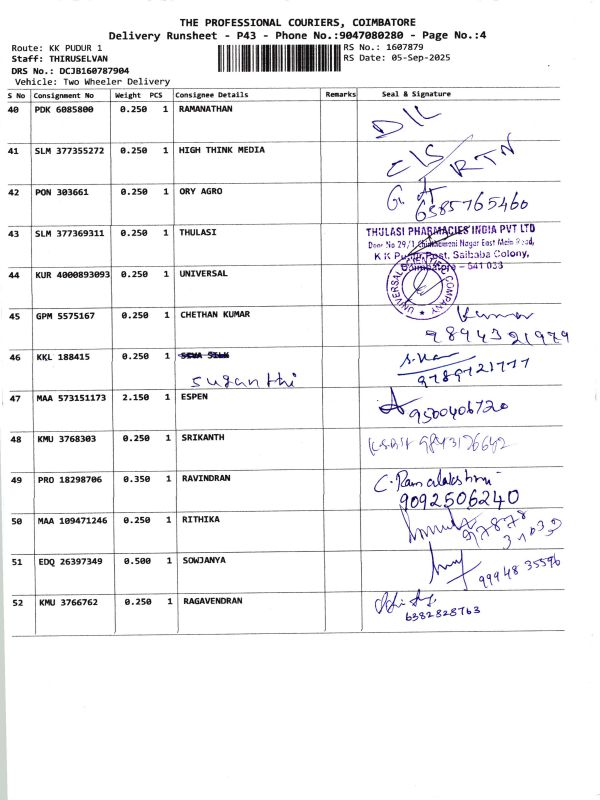 THE PROFESSIONAL COURIERS, COIMBATORE
Delivery Runsheet - P43 - Phone No.:9047080280 - Page No.:4
Route: KK PUDUR 1
RS No.: 1607879
Staff: THIRUSELVAN
RS Date: 05-Sep-2025
DRS No.: DCJB160787904
Vehicle: Two Wheeler Delivery
S No Consignment No Weight PCS Consignee Details Remarks Seal & Signature
40 PDK 6085800 0.250 1 RAMANATHAN D/L
41 SLM 377355272 0.250 1 HIGH THINK MEDIA C/S/RTN
42 PON 303661 0.250 1 ORY AGRO
6385765460
43 SLM 377369311 0.250 1 THULASI THULASI PHARMACIES INDIA PVT LTD
Door No 29/1 Nagar East Mein Road,
K K Pudur Post, Saibaba Colony,
Coimbatore - 641 038
44 KUR 4000893093 0.250 1 UNIVERSAL UNIVERSAL SCIENTIFIC COMPANY
45 GPM 5575167 0.250 1 CHETHAN KUMAR Kumar
9894321979
46 KKL 188415 0.250 1 SIVA SILK
suganthi
9789721777
47 MAA 573151173 2.150 1 ESPEN 9500406720
48 KMU 3768303 0.250 1 SRIKANTH 9843126642
49 PRO 18298706 0.350 1 RAVINDRAN C. Ramalakshmi
9092506240
50 MAA 109471246 0.250 1 RITHIKA 97878
31032
51 EDQ 26397349 0.500 1 SOWJANYA
99948 35596
52 KMU 3766762 0.250 1 RAGAVENDRAN
6382828763